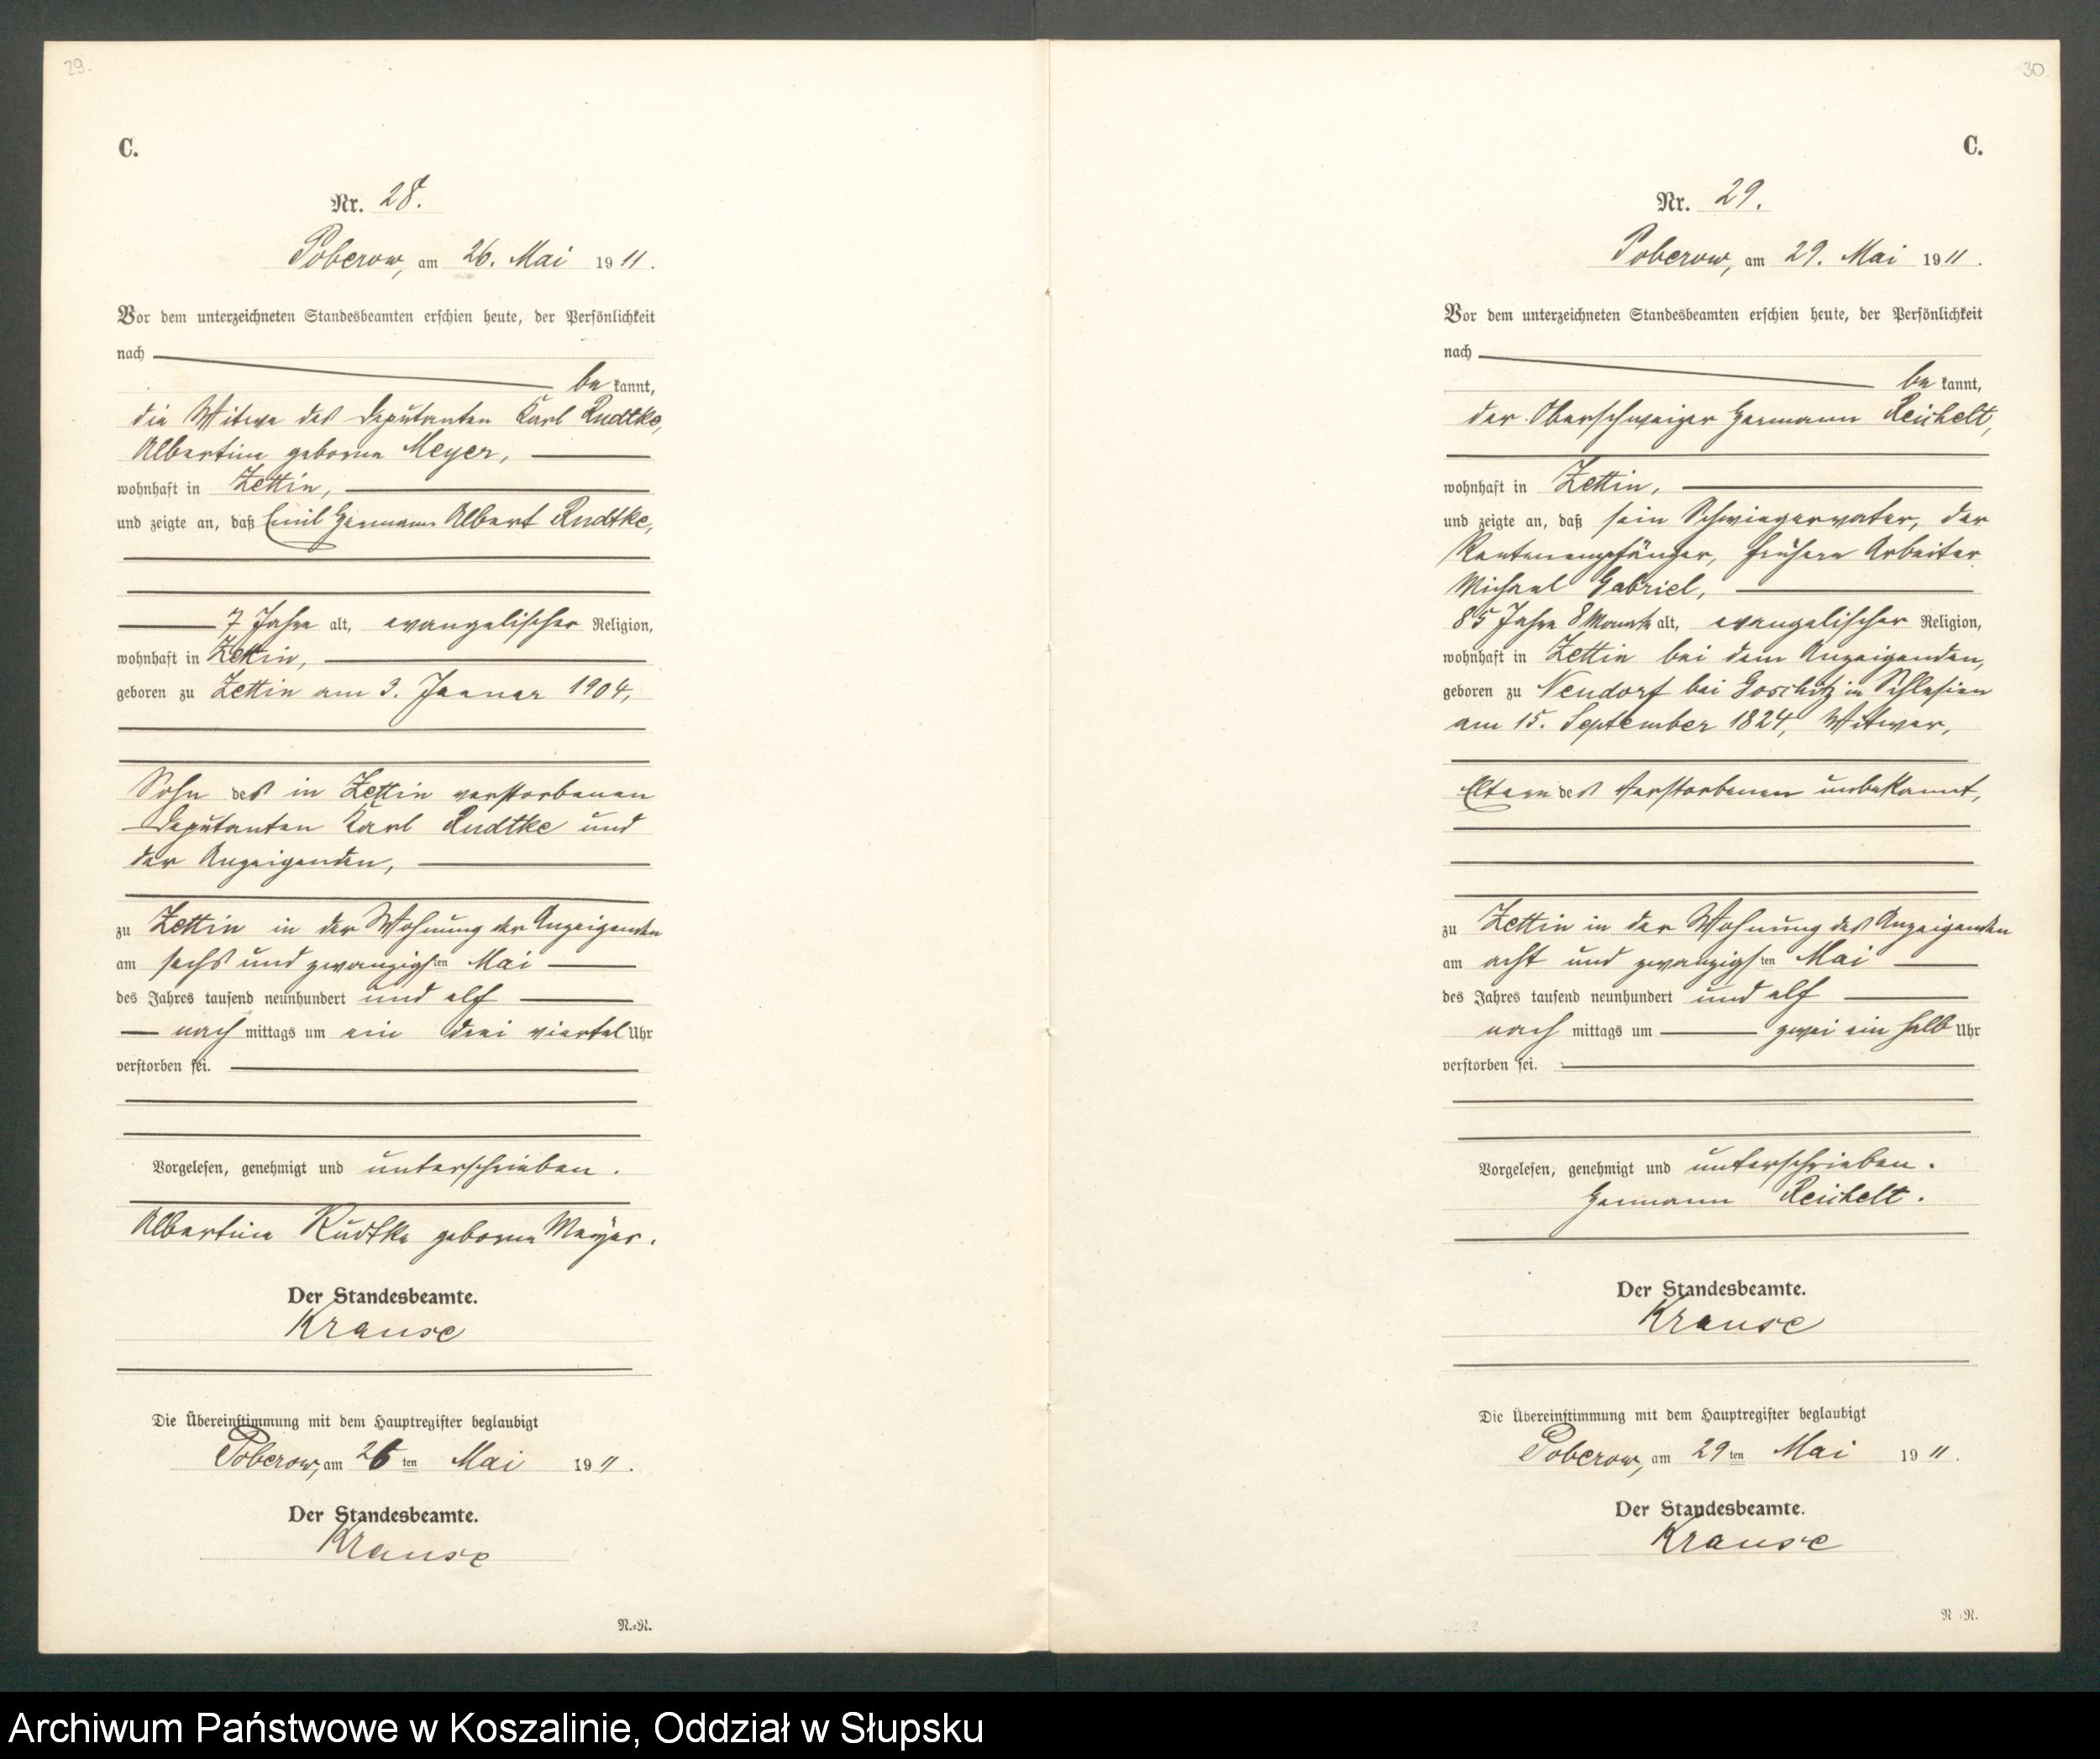 29.
C.
Nr. 28.
Poberow, am 26. Mai 1911.
Vor dem unterzeichneten Standesbeamten erschien heute, der Persönlichkeit
nach
be kannt,
die Witwe des Deputanten Karl Rudtke,
Albertine geborne Meyer,
wohnhaft in Zettin,
und zeigte an, daß Emil Hermann Albert Rudtke,
7 Jahre alt, evangelischer Religion,
wohnhaft in Zettin,
geboren zu Zettin am 3. Januar 1904,
Sohn des in Zettin verstorbenen
Deputanten Karl Rudtke und
der Anzeigenden,
zu Zettin in der Wohnung der Anzeigenden
am sechs und zwanzigsten Mai
des Jahres tausend neunhundert und elf
nach mittags um ein drei viertel Uhr
verstorben sei.
Vorgelesen, genehmigt und unterschrieben.
Albertine Rudtke geborne Meyer.
Der Standesbeamte.
Krause
Die Übereinstimmung mit dem Hauptregister beglaubigt
Poberow, am 26ten Mai 1911.
Der Standesbeamte.
Krause
N.=N.
30.
C.
Nr. 29.
Poberow, am 29. Mai 1911.
Vor dem unterzeichneten Standesbeamten erschien heute, der Persönlichkeit
nach
be kannt,
der Oberschweizer Hermann Reichelt,
wohnhaft in Zettin,
und zeigte an, daß sein Schwiegervater, der
Rentenempfänger, frühere Arbeiter
Michael Gabriel,
85 Jahre 8 Monate alt, evangelischer Religion,
wohnhaft in Zettin bei dem Anzeigenden,
geboren zu Neudorf bei Goschütz in Schlesien
am 15. September 1824, Witwer,
Eltern des Verstorbenen unbekannt,
zu Zettin in der Wohnung des Anzeigenden
am acht und zwanzigsten Mai
des Jahres tausend neunhundert und elf
nach mittags um zwei ein halb Uhr
verstorben sei.
Vorgelesen, genehmigt und unterschrieben.
Hermann Reichelt.
Der Standesbeamte.
Krause
Die Übereinstimmung mit dem Hauptregister beglaubigt
Poberow, am 29ten Mai 1911.
Der Standesbeamte.
Krause
N N.
Archiwum Państwowe w Koszalinie, Oddział w Słupsku